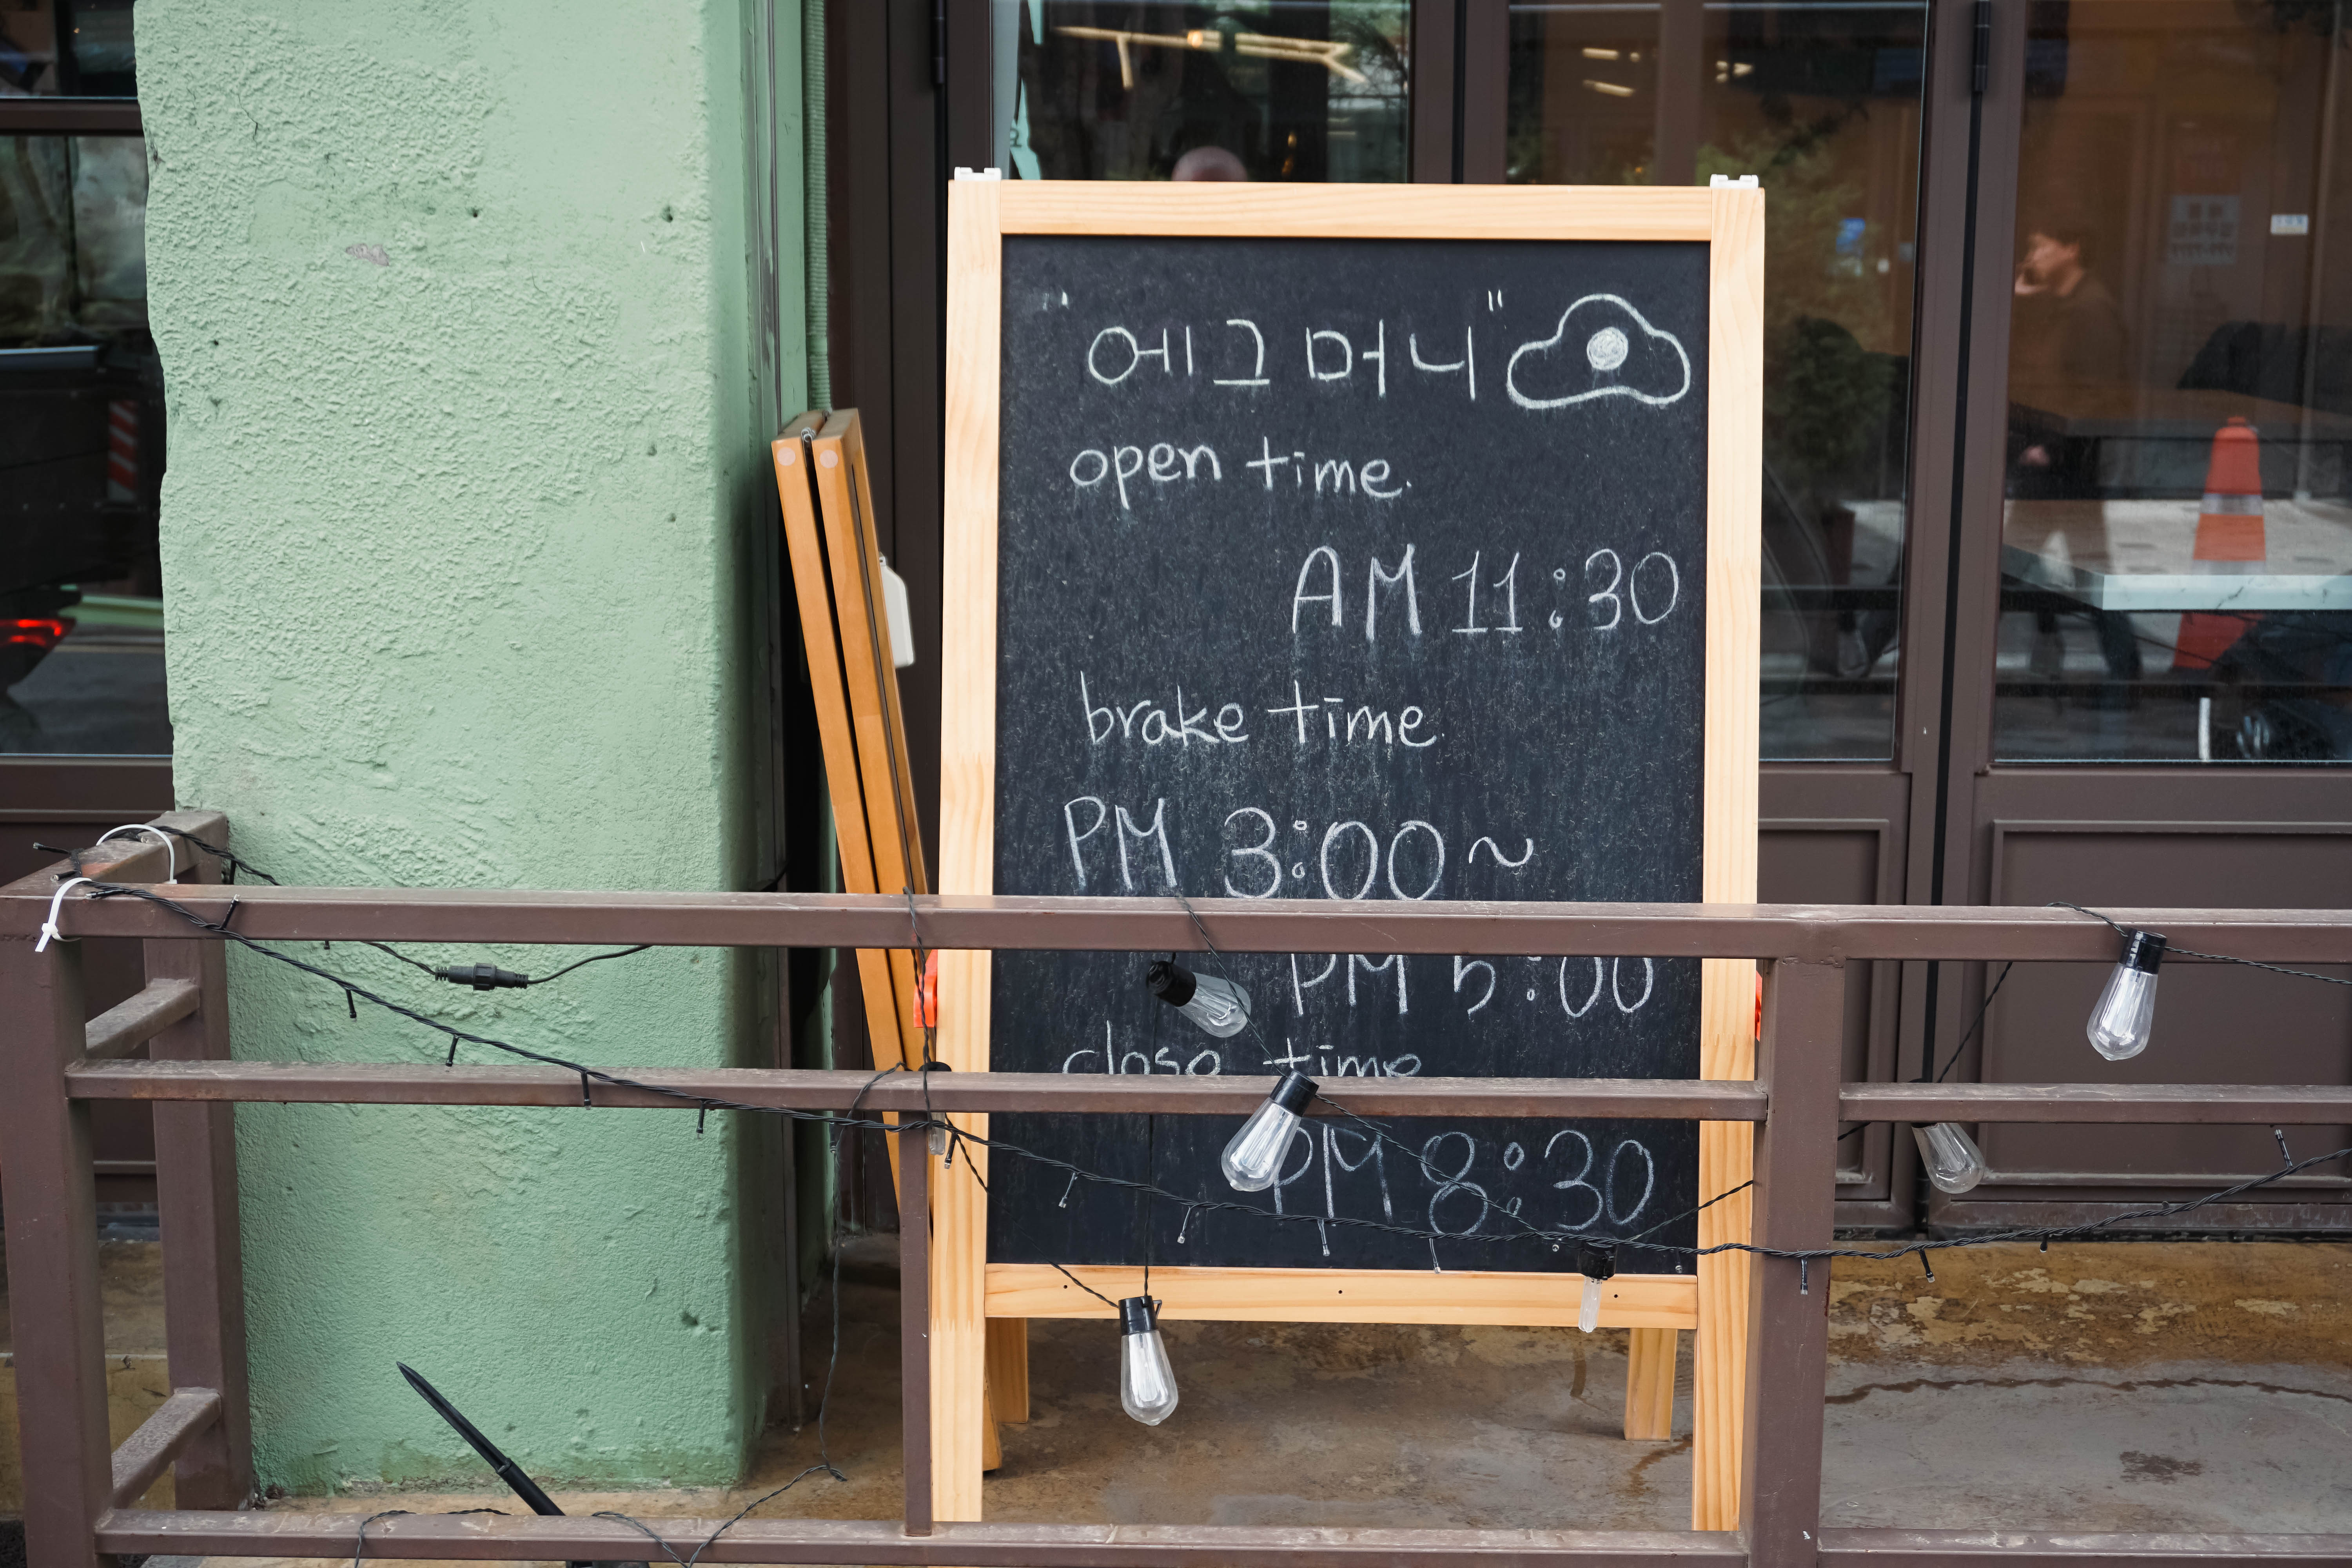 "에그머니"
open time.
AM 11:30
brake time.
PM 3:00~
PM 5:00
close time
PM 8:30